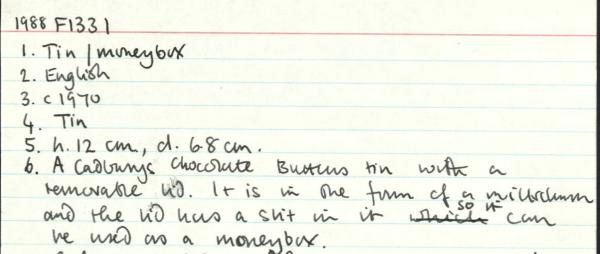 1988 F1331
1. Tin/moneybox
2. English
3. c 1970
4. Tin
5. h. 12 cm, d. 6.8 cm.
6. A Cadburys Chocolate Buttons tin with a
removable lid. It is in the form of a milkchurn
and the lid has a slit in it which so it can
be used as a moneybox.